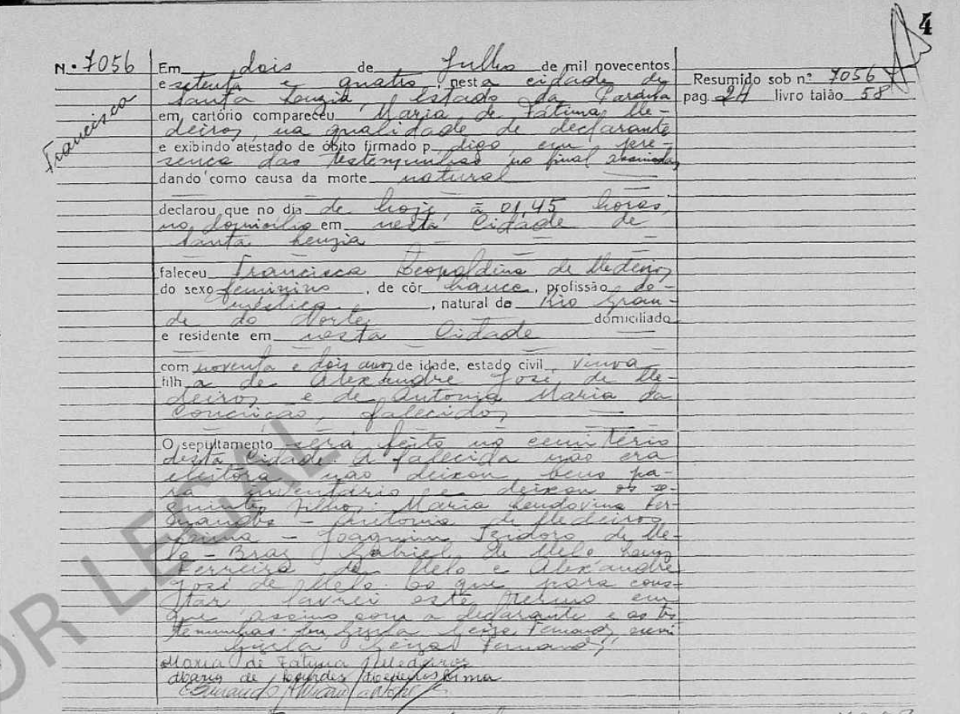 4
N.º 7056
Em dois de Julho de mil novecentos
Resumido sob nº 7056
e setenta e quatro, nesta cidade de
pag. 24 livro talão 58
Santa Luzia, Estado da Paraíba
Francisca
em cartório compareceu Maria de Fatima Me-
deiros, na qualidade de declarante
e exibindo atestado de óbito firmado p digo, em pre-
sença das testemunhas no final assinadas
dando como causa da morte natural
declarou que no dia de hoje, à 01,45 horas,
no domicílio em nesta Cidade de
Santa Luzia
faleceu Francisca Leopoldina de Medeiros
do sexo feminino, de côr branca, profissão do-
méstica, natural do Rio Gran-
de do Norte domiciliado
e residente em nesta Cidade
com noventa e dois anos de idade, estado civil viuva
filha de Alexandre José de Me-
deiros e de Antonia Maria da
Conceição, falecidos
O sepultamento será feito no cemitério
desta cidade. A falecida não era
eleitora não deixou bens pa-
ra inventário e deixou os se-
guintes filhos: Maria
Antonia de Medeiros
Joaquim Izidoro de Me-
lo - Braz Gabriel de Melo
Ferreira de Melo e Alexandre
José de Melo. Do que para cons-
tar, lavrei este termo em
que assino com a declarante e as tes
temunhas. Eu
Maria de Fatima Medeiros
Maria de Lourdes
OR LEGAL